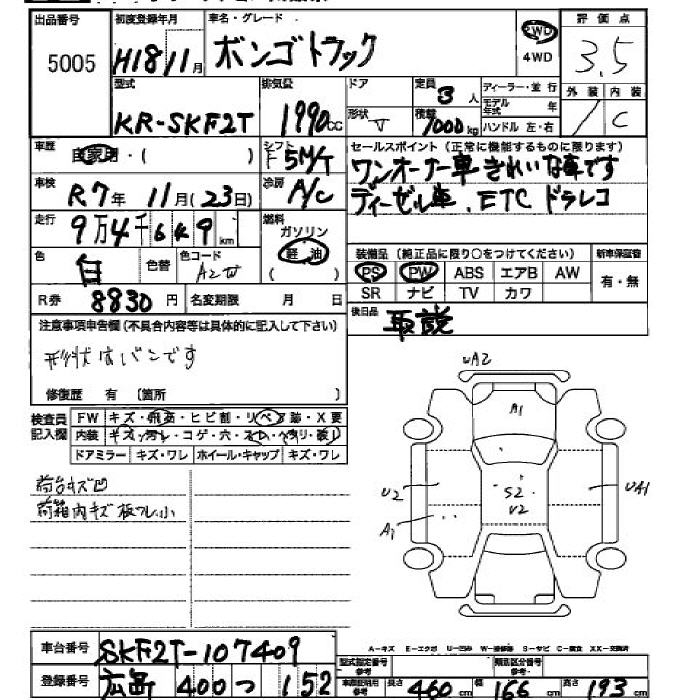 出品番号 初度登録年月 車名・グレード 評価点
5005 H18 11月 ボンゴトラック 2WD 4WD 3.5
型式 排気量 ドア 定員 ディーラー・並行 外装 内装
KR-SKF2T 1990cc 形状 V 3人 積載 1000kg モデル年式 年 ハンドル 左・右 / C
車歴 自家用・( ) シフト F5M/T セールスポイント(正常に機能するものに限ります)
ワンオーナー車 きれいな車です
車検 R7年 11月(23日) 冷房 A/C ディーゼル車. ETC ドラレコ
走行 9万4千6k9km 燃料 ガソリン 軽油 ( )
装備品(純正品に限り○をつけてください) 新車保証書
色 白 色替 色コード PS PW ABS エアB AW 有・無
SR ナビ TV カワ
R券 8830円 名変期限 月 日
後日品 取説
注意事項申告欄(不具合内容等は具体的に記入して下さい)
形状はバンです
修復歴 有 〔箇所 〕
検査員記入欄 FW キズ・飛石・ヒビ割・リペア跡・X要
内装 キズ・汚レ・コゲ・穴・スレ・ヘタリ・破レ
ドアミラー キズ・ワレ ホイール・キャップ キズ・ワレ
荷台キズ凹
荷箱内キズ 板ワレ小
UA2
A1
U2 S2 UA1
U2
A1
A-キズ E-エクボ U-凹み W-補修跡 S-サビ C-腐食 XX-交換済
車台番号 SKF2T-107409
登録番号 広島 400 つ 152
型式指定番号 参考 類別区分番号 参考
車検証明用 参考 長さ 460cm 幅 166cm 高さ 193cm